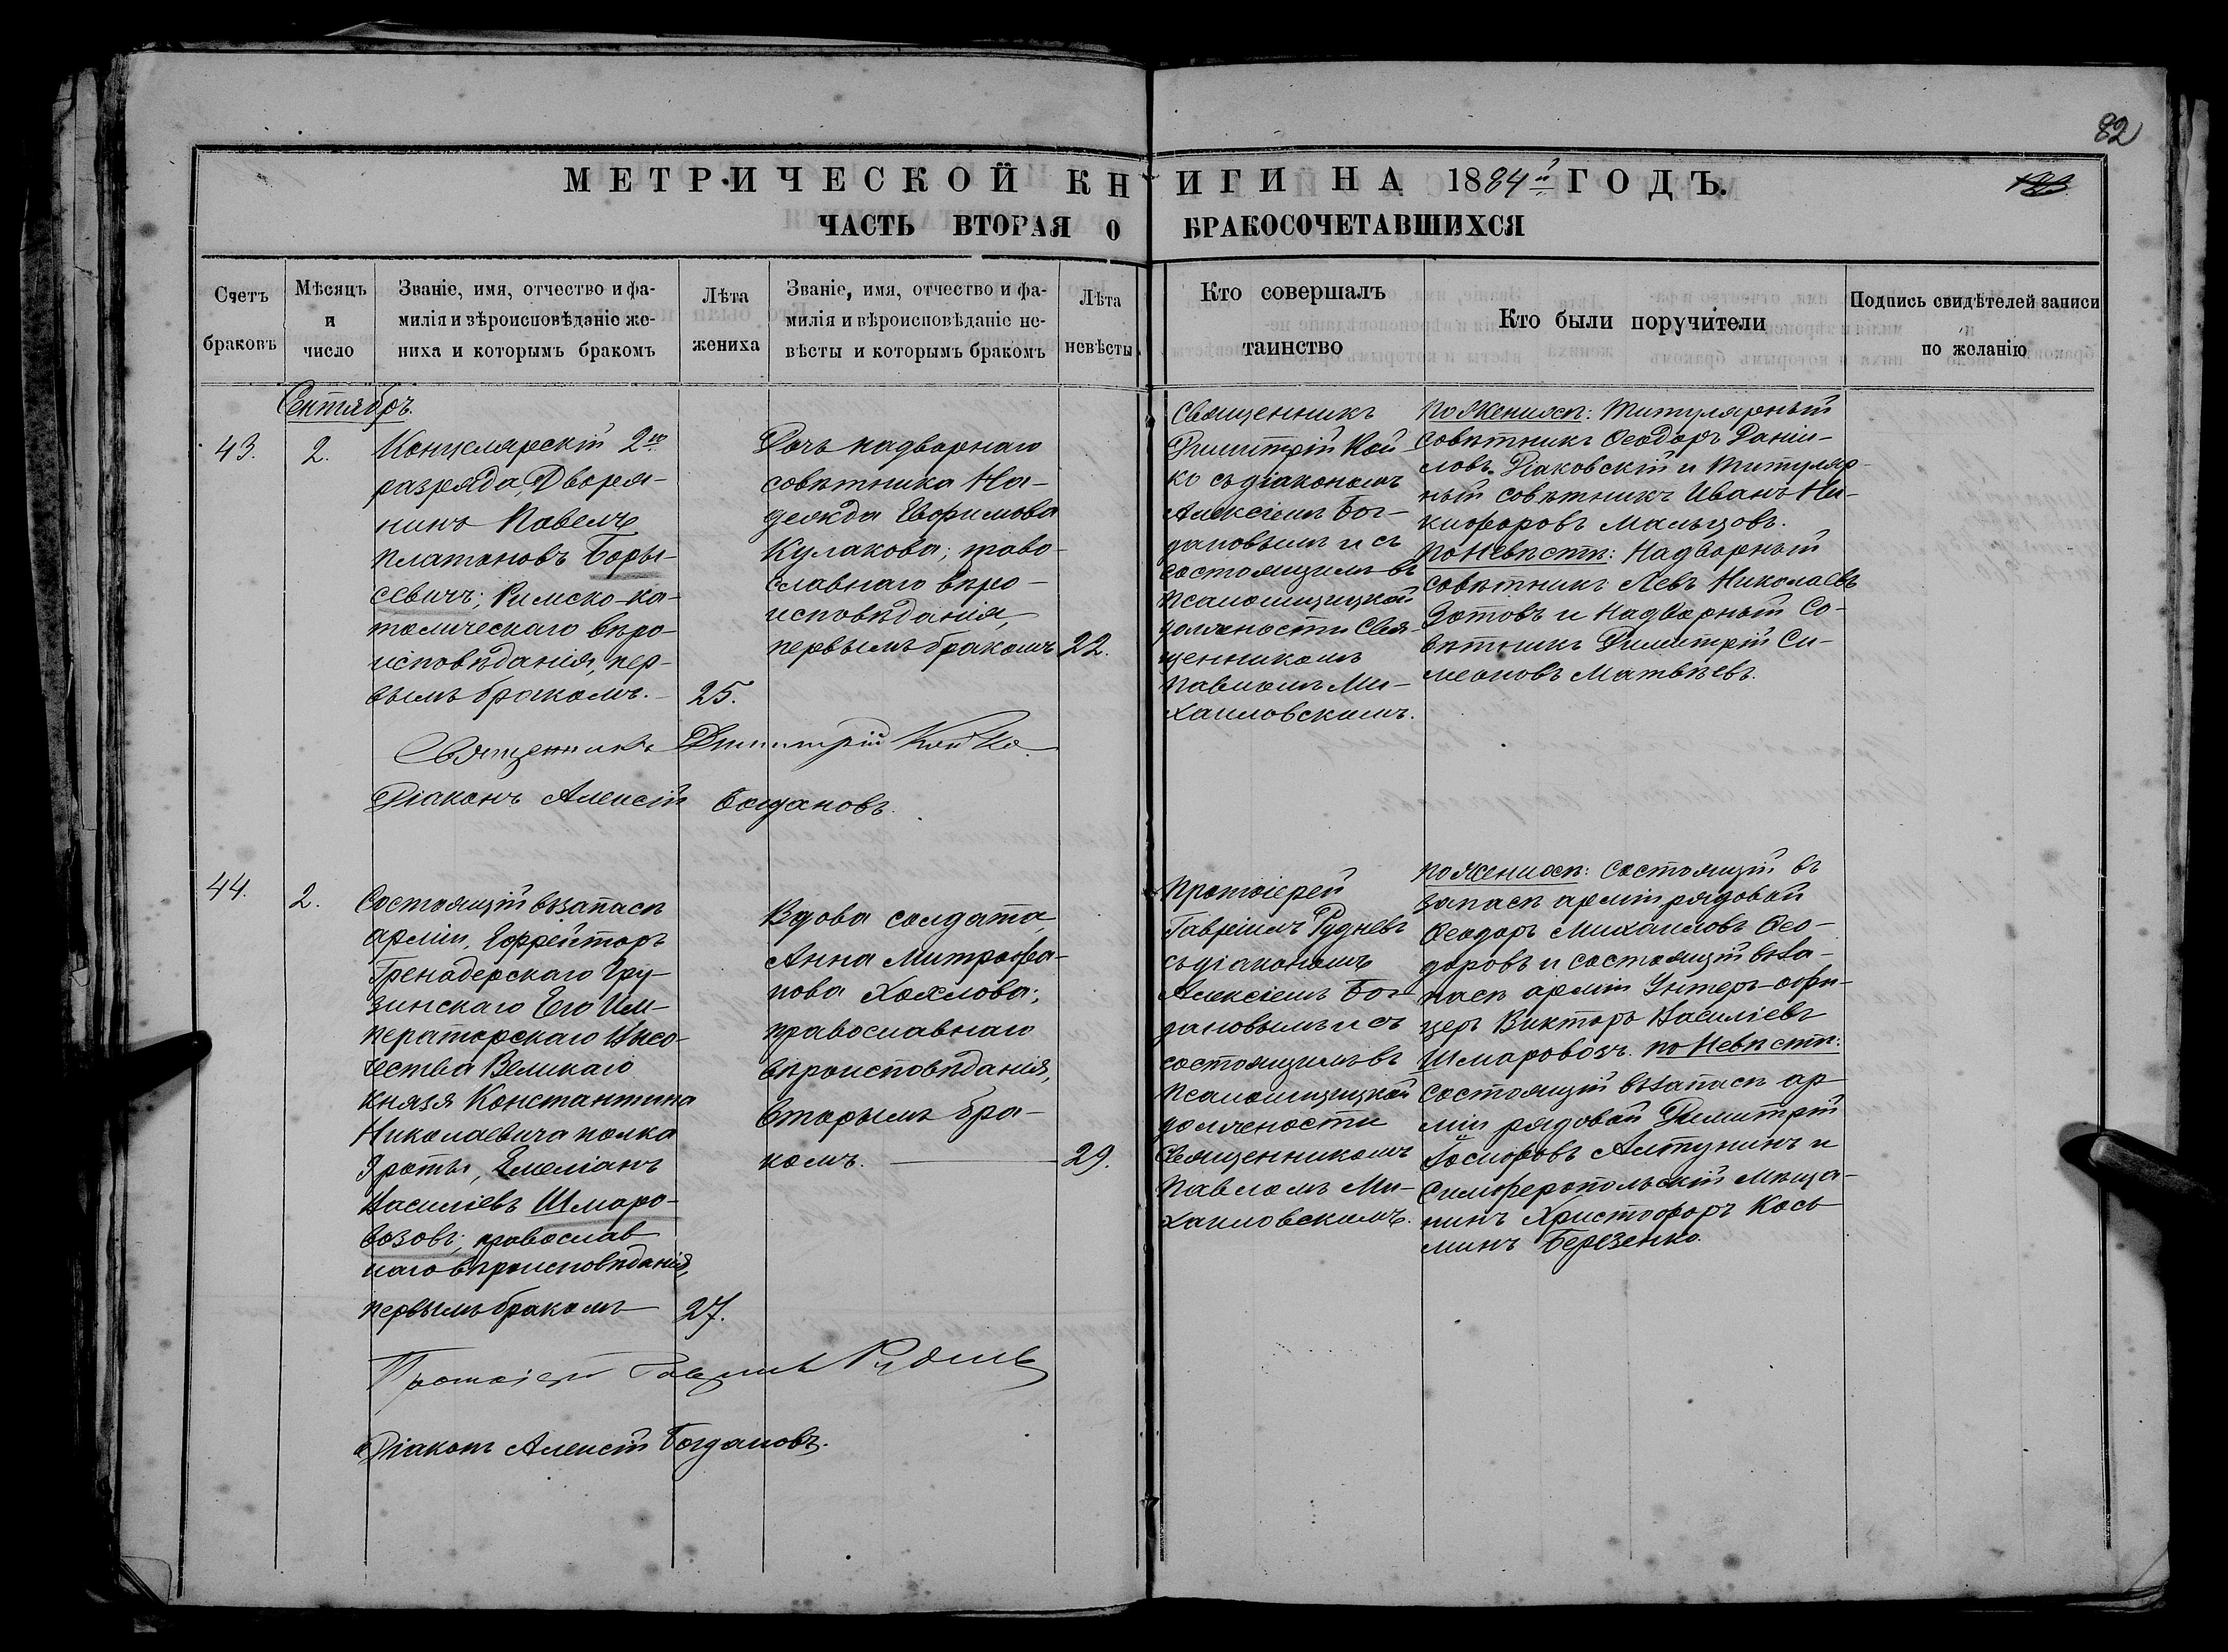 82
МЕТРИЧЕСКОЙ КНИГИ НА 1884й ГОДЪ.
ЧАСТЬ ВТОРАЯ О БРАКОСОЧЕТАВШИХСЯ
Счетъ браковъ
Мѣсяцъ и число
Званіе, имя, отчество и фа-
милія и вѣроисповѣданіе же-
ниха и которымъ бракомъ
Лѣта жениха
Званіе, имя, отчество и фа-
милія и вѣроисповѣданіе не-
вѣсты и которымъ бракомъ
Лѣта невѣсты
Кто совершалъ
таинство
Кто были поручители
Подпись свидѣтелей записи
по желанію
Сентябрь.
43.
2.
Канцелярскій 2го
разряда, Дворя-
нинъ Павелъ
Платоновъ Боры-
севичъ; Римско-ка-
толическаго вѣро-
исповѣданія, пер-
вымъ бракомъ.
25.
Дочь надворнаго
совѣтника На-
дежда Евфимова
Кулакова; право-
славнаго вѣро-
исповѣданія,
первымъ бракомъ
22.
Священникъ
Димитрій Кой-
ко съ діакономъ
Алексіемъ Бог-
дановымъ и съ
состоящимъ въ
псаломщицкой
должности Свя-
щенникомъ
Павломъ Ми-
хаиловскимъ.
По Женихѣ: Титулярный
совѣтникъ Ѳеодоръ Даніи-
ловъ Діаковскій и Титуляр-
ный совѣтникъ Иванъ Ни-
кифоровъ Мальцовъ.
По Невѣстѣ: Надворный
совѣтникъ Левъ Николаевъ
Зотовъ и Надворный Со-
вѣтникъ Димитрій Си-
меоновъ Матвѣевъ.
Священникъ Димитрій Койко
Діаконъ Алексій Богдановъ.
44.
2.
Состоящій въ запасѣ
арміи, Ефрейторъ
Гренадерскаго Гру-
зинскаго Его Им-
ператорскаго Высо-
чества Великаго
Князя Константина
Николаевича полка
роты, Емеліанъ
Василіевъ Шмаро-
возовъ; православ
наго вѣроисповѣданія,
первымъ бракомъ
27.
Вдова солдата,
Анна Митрофа-
нова Хохлова;
православнаго
вѣроисповѣданія,
вторымъ бра-
комъ.
29.
Протоіерей
Гавріилъ Рудневъ
съ діакономъ
Алексіемъ Бог-
дановымъ и съ
состоящимъ въ
псаломщицкой
должности
Священникомъ
Павломъ Ми-
хаиловскимъ.
По Женихѣ: состоящій въ
запасѣ арміи рядовой
Ѳеодоръ Михаиловъ Ѳео-
доровъ и состоящій въ за-
пасѣ арміи Унтеръ-офи-
церъ Викторъ Василіевъ
Шмаровозъ. По Невѣстѣ:
состоящій въ запасѣ ар-
міи рядовой Димитрій
Алтунинъ и
Симферопольскій Мѣща-
нинъ Христофоръ Кось-
минъ Березенко.
Протоіерей Гавріилъ Рудневъ
Діаконъ Алексій Богдановъ.